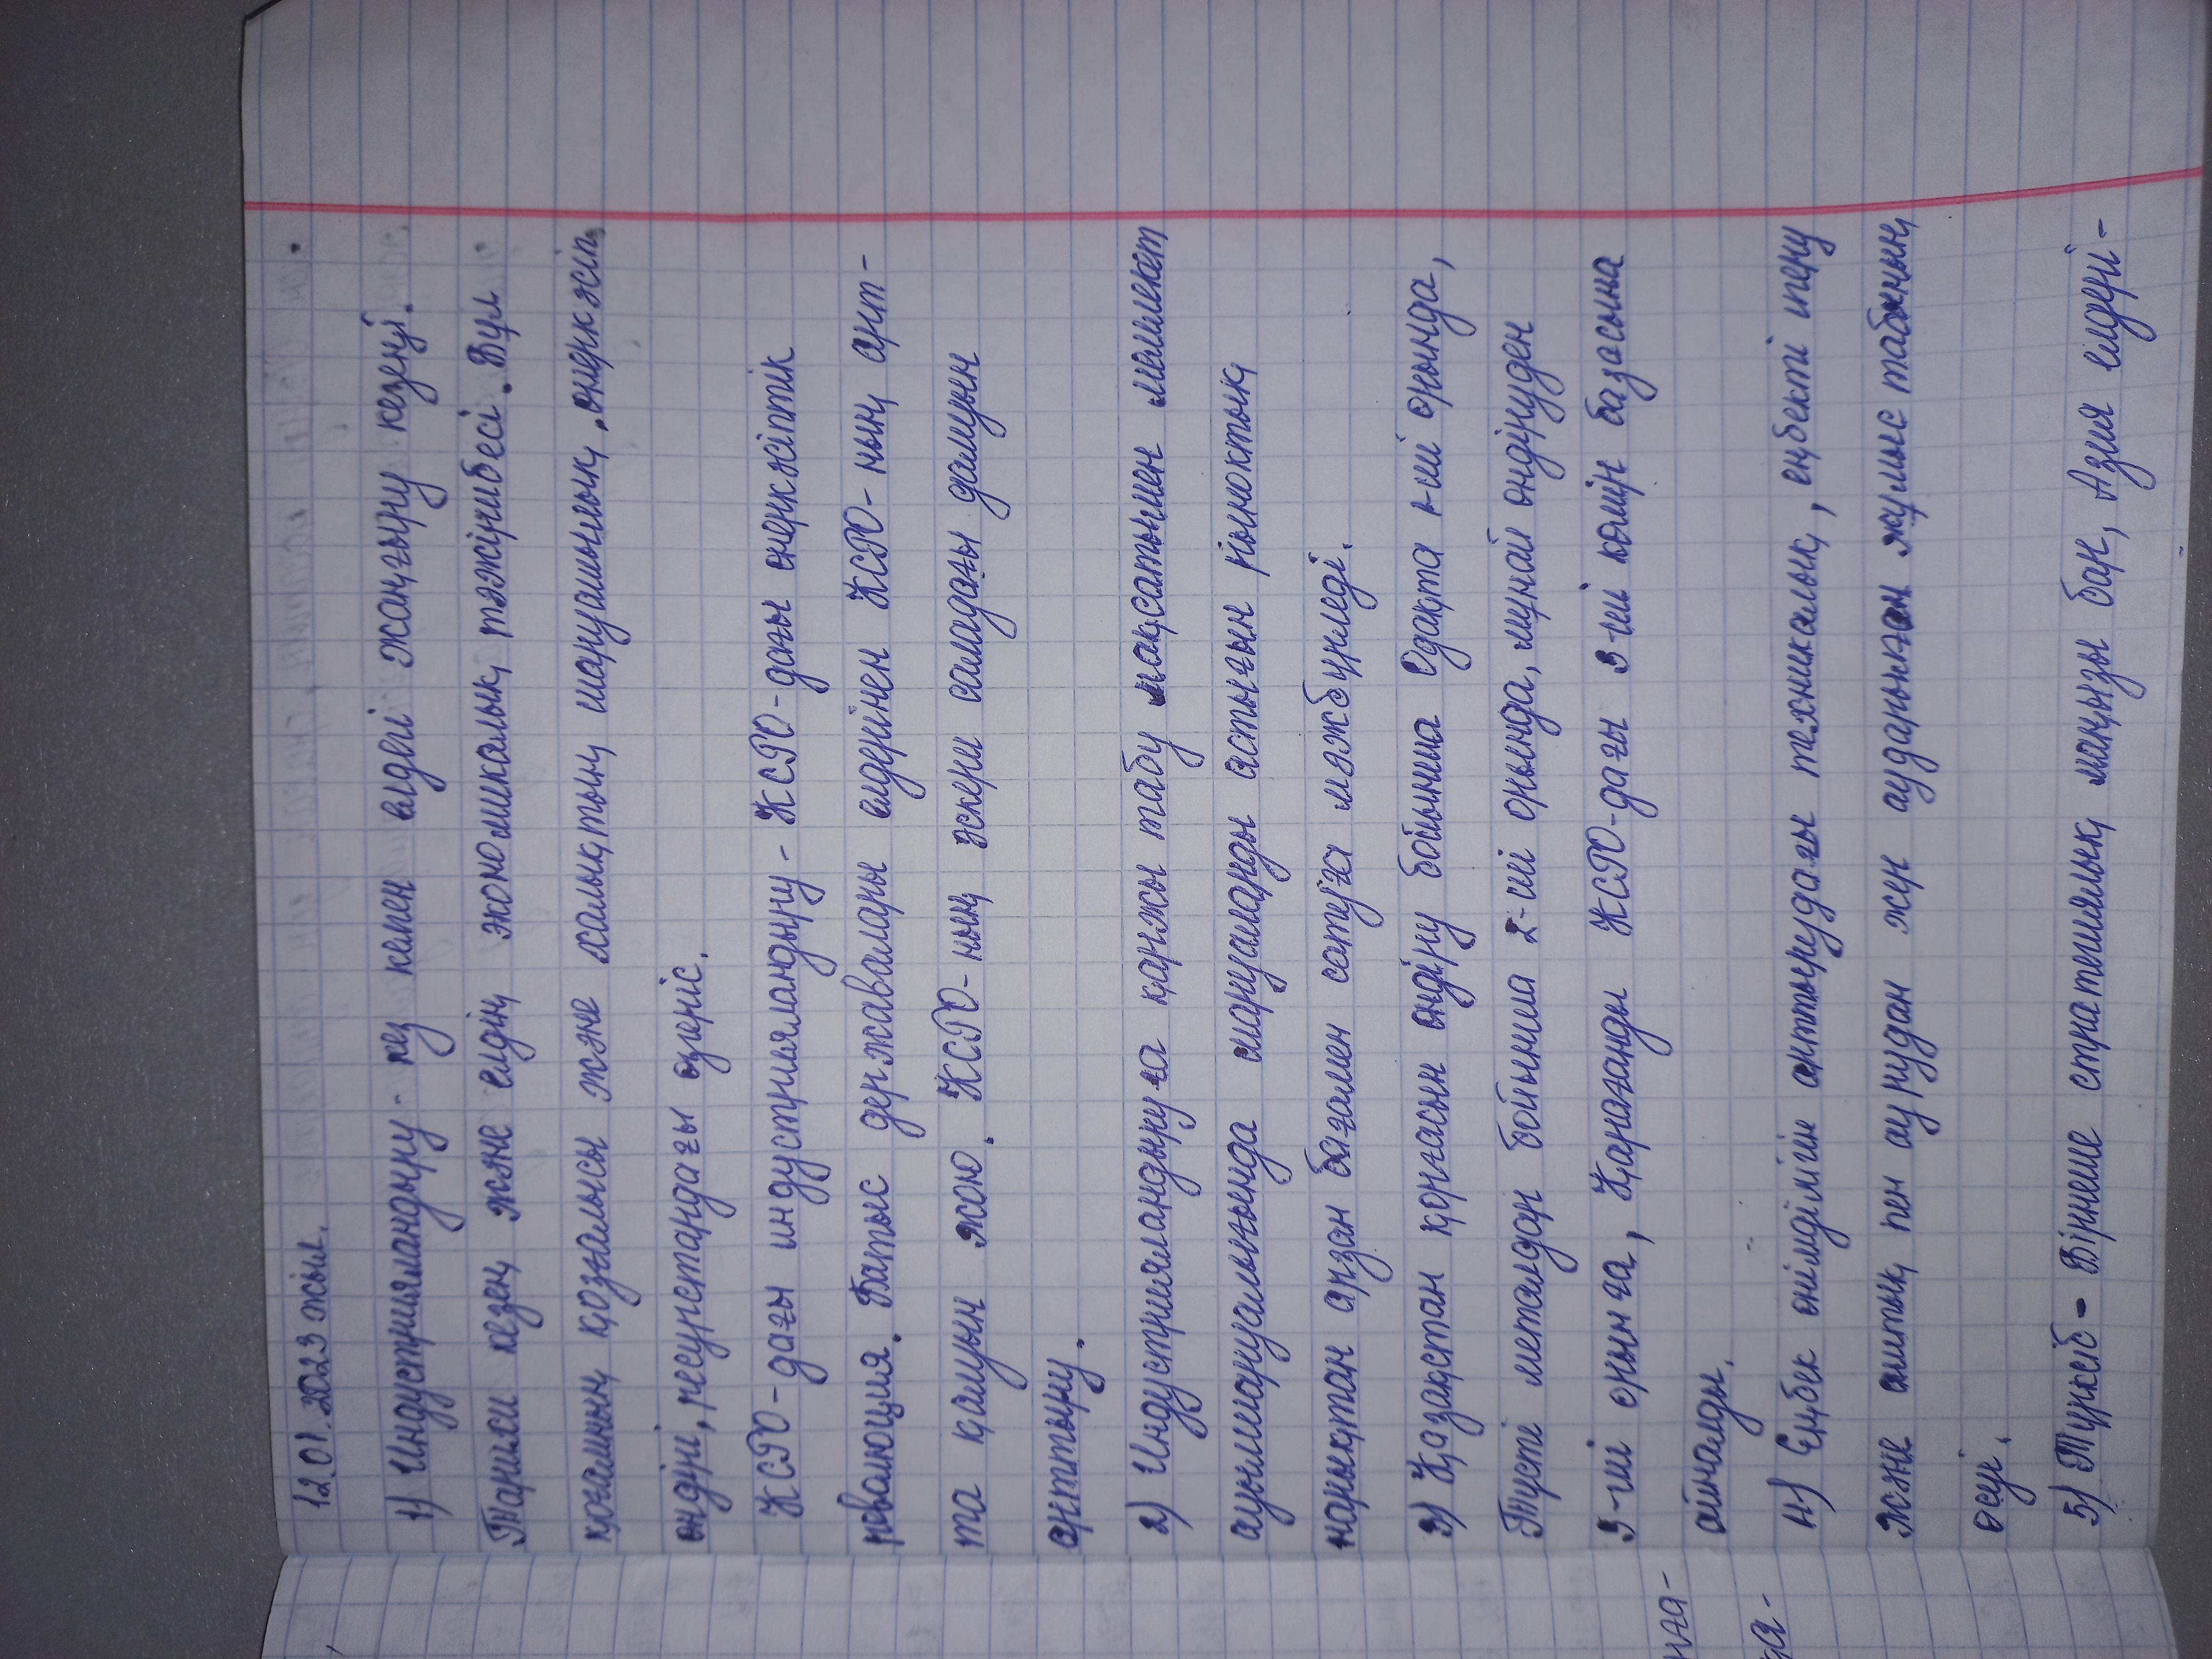 12.01.2023 жыл.
1) Индустрияландыру - кез келген елдегі жаңғыру кезеңі.
Тарихи кезең және елдің экономикалық тәжірибесі. Бұл
қоғамның қозғалысы және халықтың шаруашылық, өнеркәсіп
өндірі, ресурстардағы өзеріс.
КСРО-дағы индустрияландыру - КСРО-дағы өнеркәсіптік
революция. Батыс державалары елдерінен КСРО-ның арт-
та қалуын жою. КСРО-ның әскери саладағы дамуын
арттыру.
2) Индустрияландыруға қаржы табу мақсатымен мемлекет
ауылшаруашылығында шаруаларды астығын рыноктық
нарықтан арзан бағамен сатуға мәжбүрледі.
3) Қазақстан қорғасын өндіру бойынша Одақта 1-ші орында,
Түсті металдар бойынша 2-ші орында, мұнай өндіруден
3-ші орынға, Қарағанды КСРО-дағы 3-ші көмір базасына
айналды.
4) Еңбек өнімділігін арттырудағы техникалық, еңбекті игеру
және аштық пен аурудан жер аударылған жұмыс табының
өсуі.
5) Түрксіб - Бірнеше стратегиялық маңызы бар, Азия елдері-
ная-
ға-